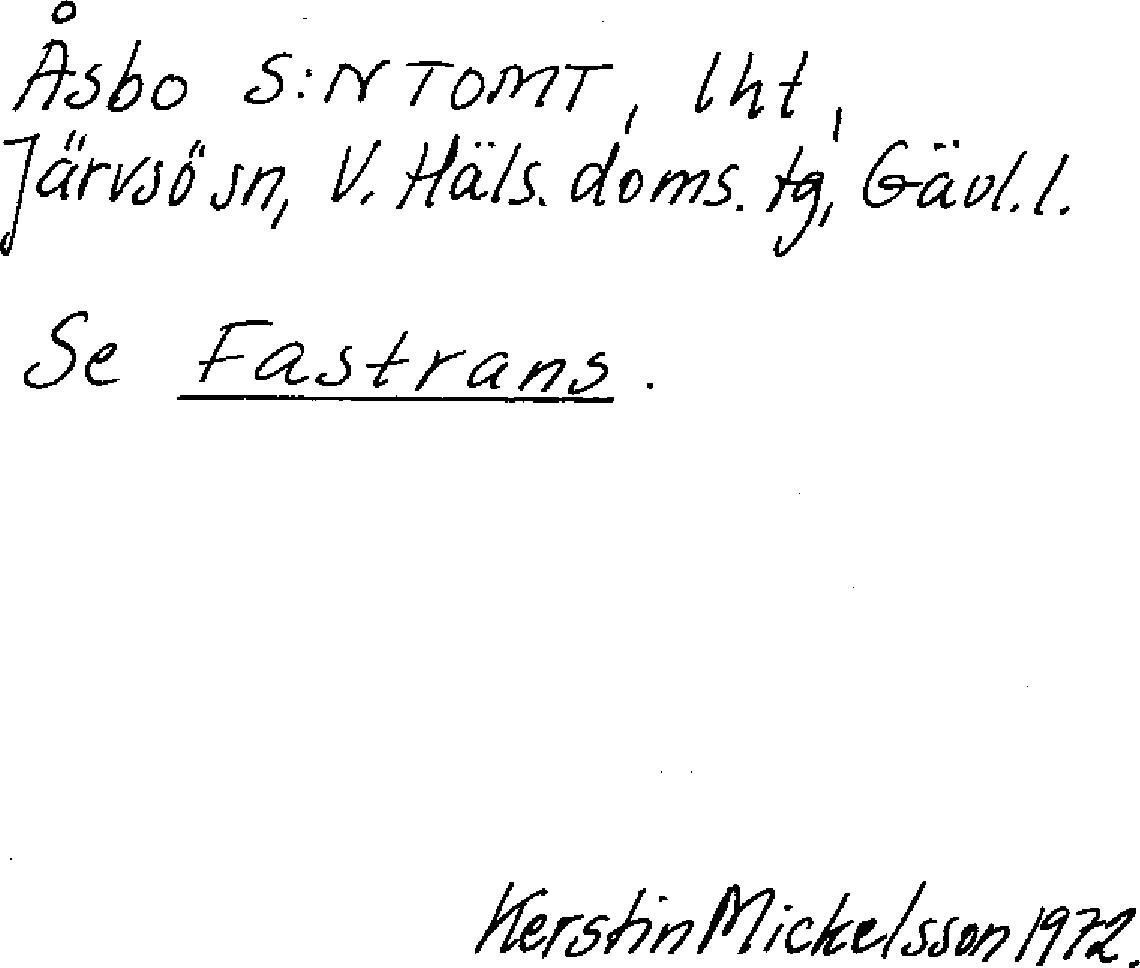 Åsbo S:N TOMT, lht,
Järvsö sn, V. Häls. doms. tg, Gävl. l.
Se Fastrans.
Kerstin Mickelsson 1972.